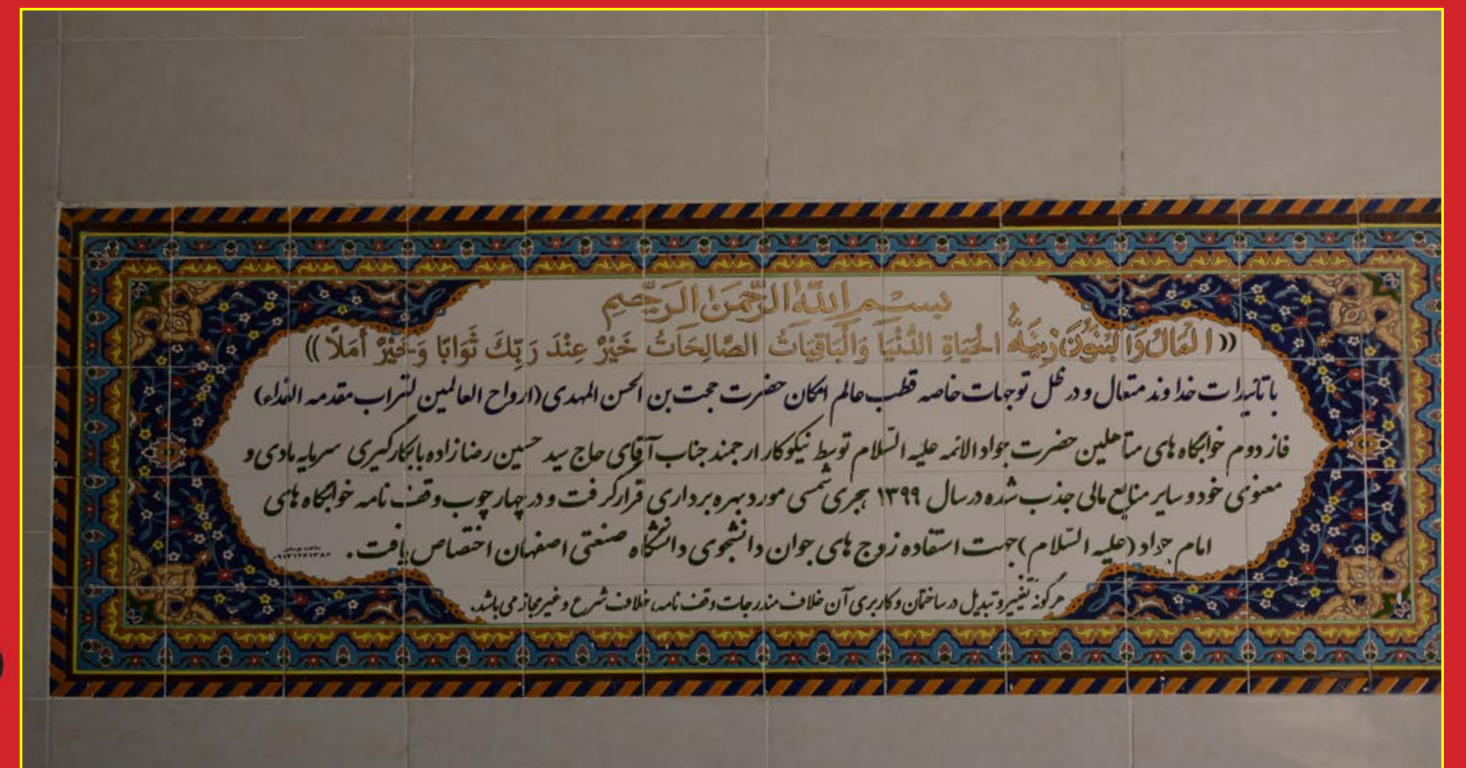 بسم الله الرحمن الرحیم
«الْمَالُ وَالْبَنُونَ زِينَةُ الْحَيَاةِ الدُّنْيَا وَالْبَاقِيَاتُ الصَّالِحَاتُ خَيْرٌ عِنْدَ رَبِّكَ ثَوَابًا وَخَيْرٌ أَمَلًا»
با تائیدات خداوند متعال و در ظل توجهات خاصه قطب عالم امکان حضرت حجت بن الحسن المهدی (ارواح العالمین لتراب مقدمه الفداء)
فاز دوم خوابگاه های متاهلین حضرت جواد الائمه علیه السلام توسط نیکوکار ارجمند جناب آقای حاج سید حسین رضازاده با بکارگیری سرمایه مادی و
معنوی خود و سایر منابع مالی جذب شده در سال ۱۳۹۹ هجری شمسی مورد بهره برداری قرار گرفت و در چهارچوب وقف نامه خوابگاه های
امام جواد (علیه السلام) جهت استفاده زوج های جوان دانشجوی دانشگاه صنعتی اصفهان اختصاص یافت.
هرگونه تغییر و تبدیل در ساختمان و کاربری آن خلاف مندرجات وقف نامه، خلاف شرع و غیر مجاز می باشد.